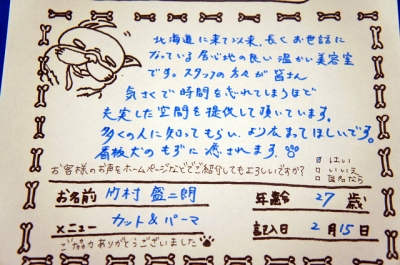 北海道に来て以来、長くお世話に
なっている居心地の良い温かい美容室
です。スタッフの方々が皆さん
気さくで時間を忘れてしまうほど
充実した空間を提供して頂いています。
多くの人に知ってもらい、より広まってほしいです。
看板犬のもずに癒されます。
お客様のお声をホームページなどでご紹介してもよろしいですか?
はい
いいえ
匿名なら
お名前 竹村 盛二朗 年齢 27 歳
メニュー カット&パーマ 記入日 2月15日
ご協力ありがとうございました